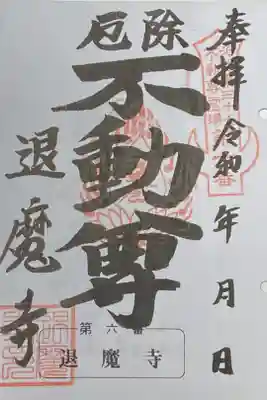 奉拝 令和 年 月 日
厄除
不動尊
退魔寺
第六番
退魔寺